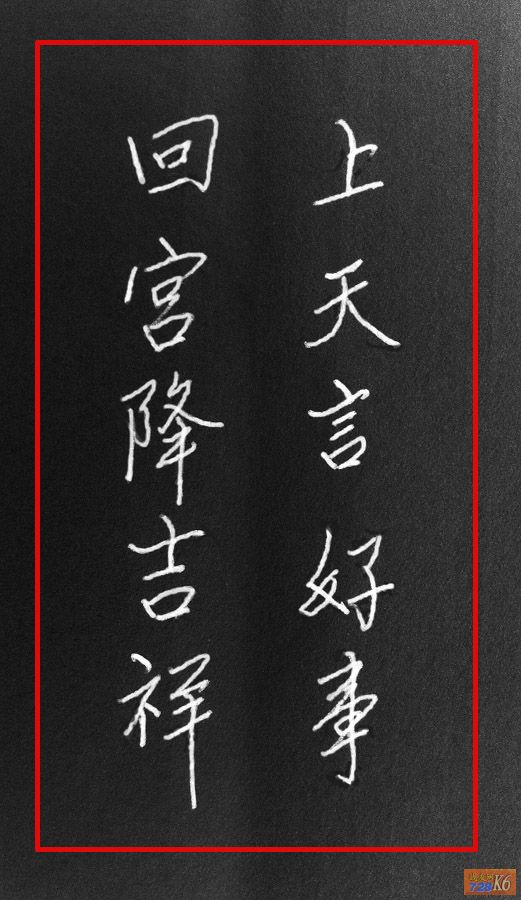 上天言好事
回宮降吉祥
728 K6